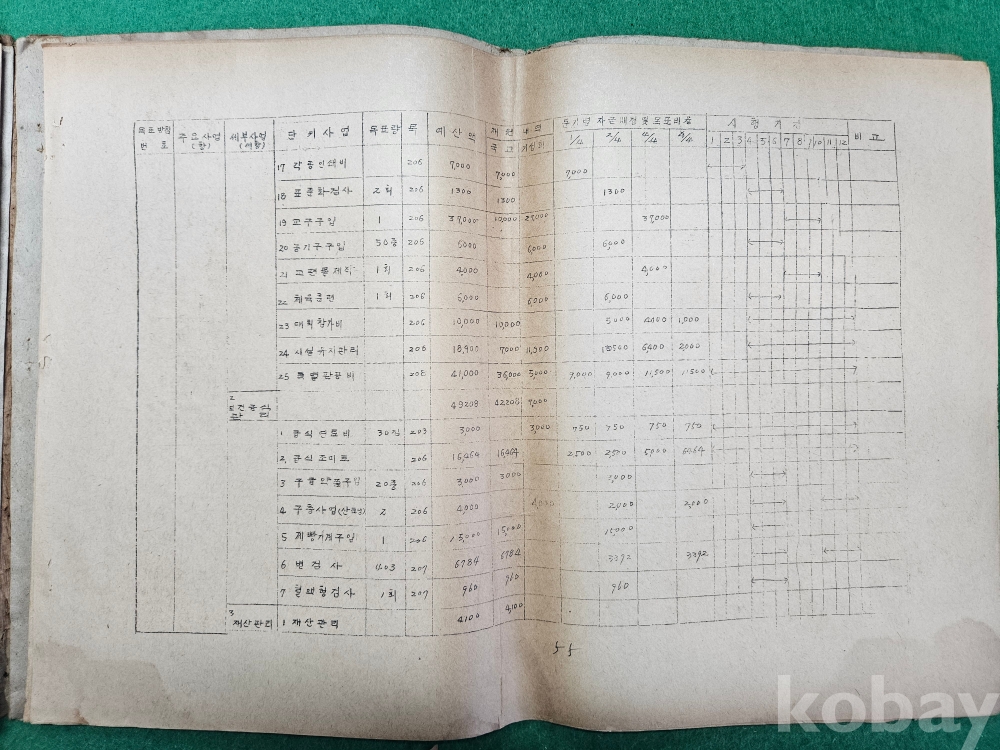 목표방침 번호 주요사업 (항) 세부사업 단위사업 목표량 목 예산액 재원내역 국고 분기별 자금 및 목표 1/4 2/4 3/4 4/4 시행기간 1 2 3 4 5 6 7 8 9 10 11 12 비고
17 각종인쇄비 206 7,000 7,000 7,000
18 표준화검사 2회 206 1300 1300 1300
19 교구구입 1 206 10,000
20 공기구구입 50종 206 6,000 6,000
21 1회 206 4,000 4,000 4,000
22 체육훈련 1회 206 6,000 6,000 6,000
23 대회참가비 206 10,000 10,000 5000 4000 1,000
24 시설유지관리 206 18,900 7000 11,900 6,400 2,000
25 특별판공비 208 41,000 36,000 5,000 9,000 11,500
2 49208 42208 7,000
1 급식연료비 203 3,000 3,000 750 750 750 750
2 급식 206 16,464 16,464 2,500 2,500 5,000 6464
3 구입 20종 206 3,000 3000 3,000
4 구충사업 2 206 4,000 4,000 2,000 2,000
5 제빵기계구입 1 206 15,000 15,000 15,000
6 변검사 403 207 6784 6784 3392 3392
7 혈액형검사 1회 207 960 960 960
3 재산관리 1 재산관리 4100 4,100
55
kobay